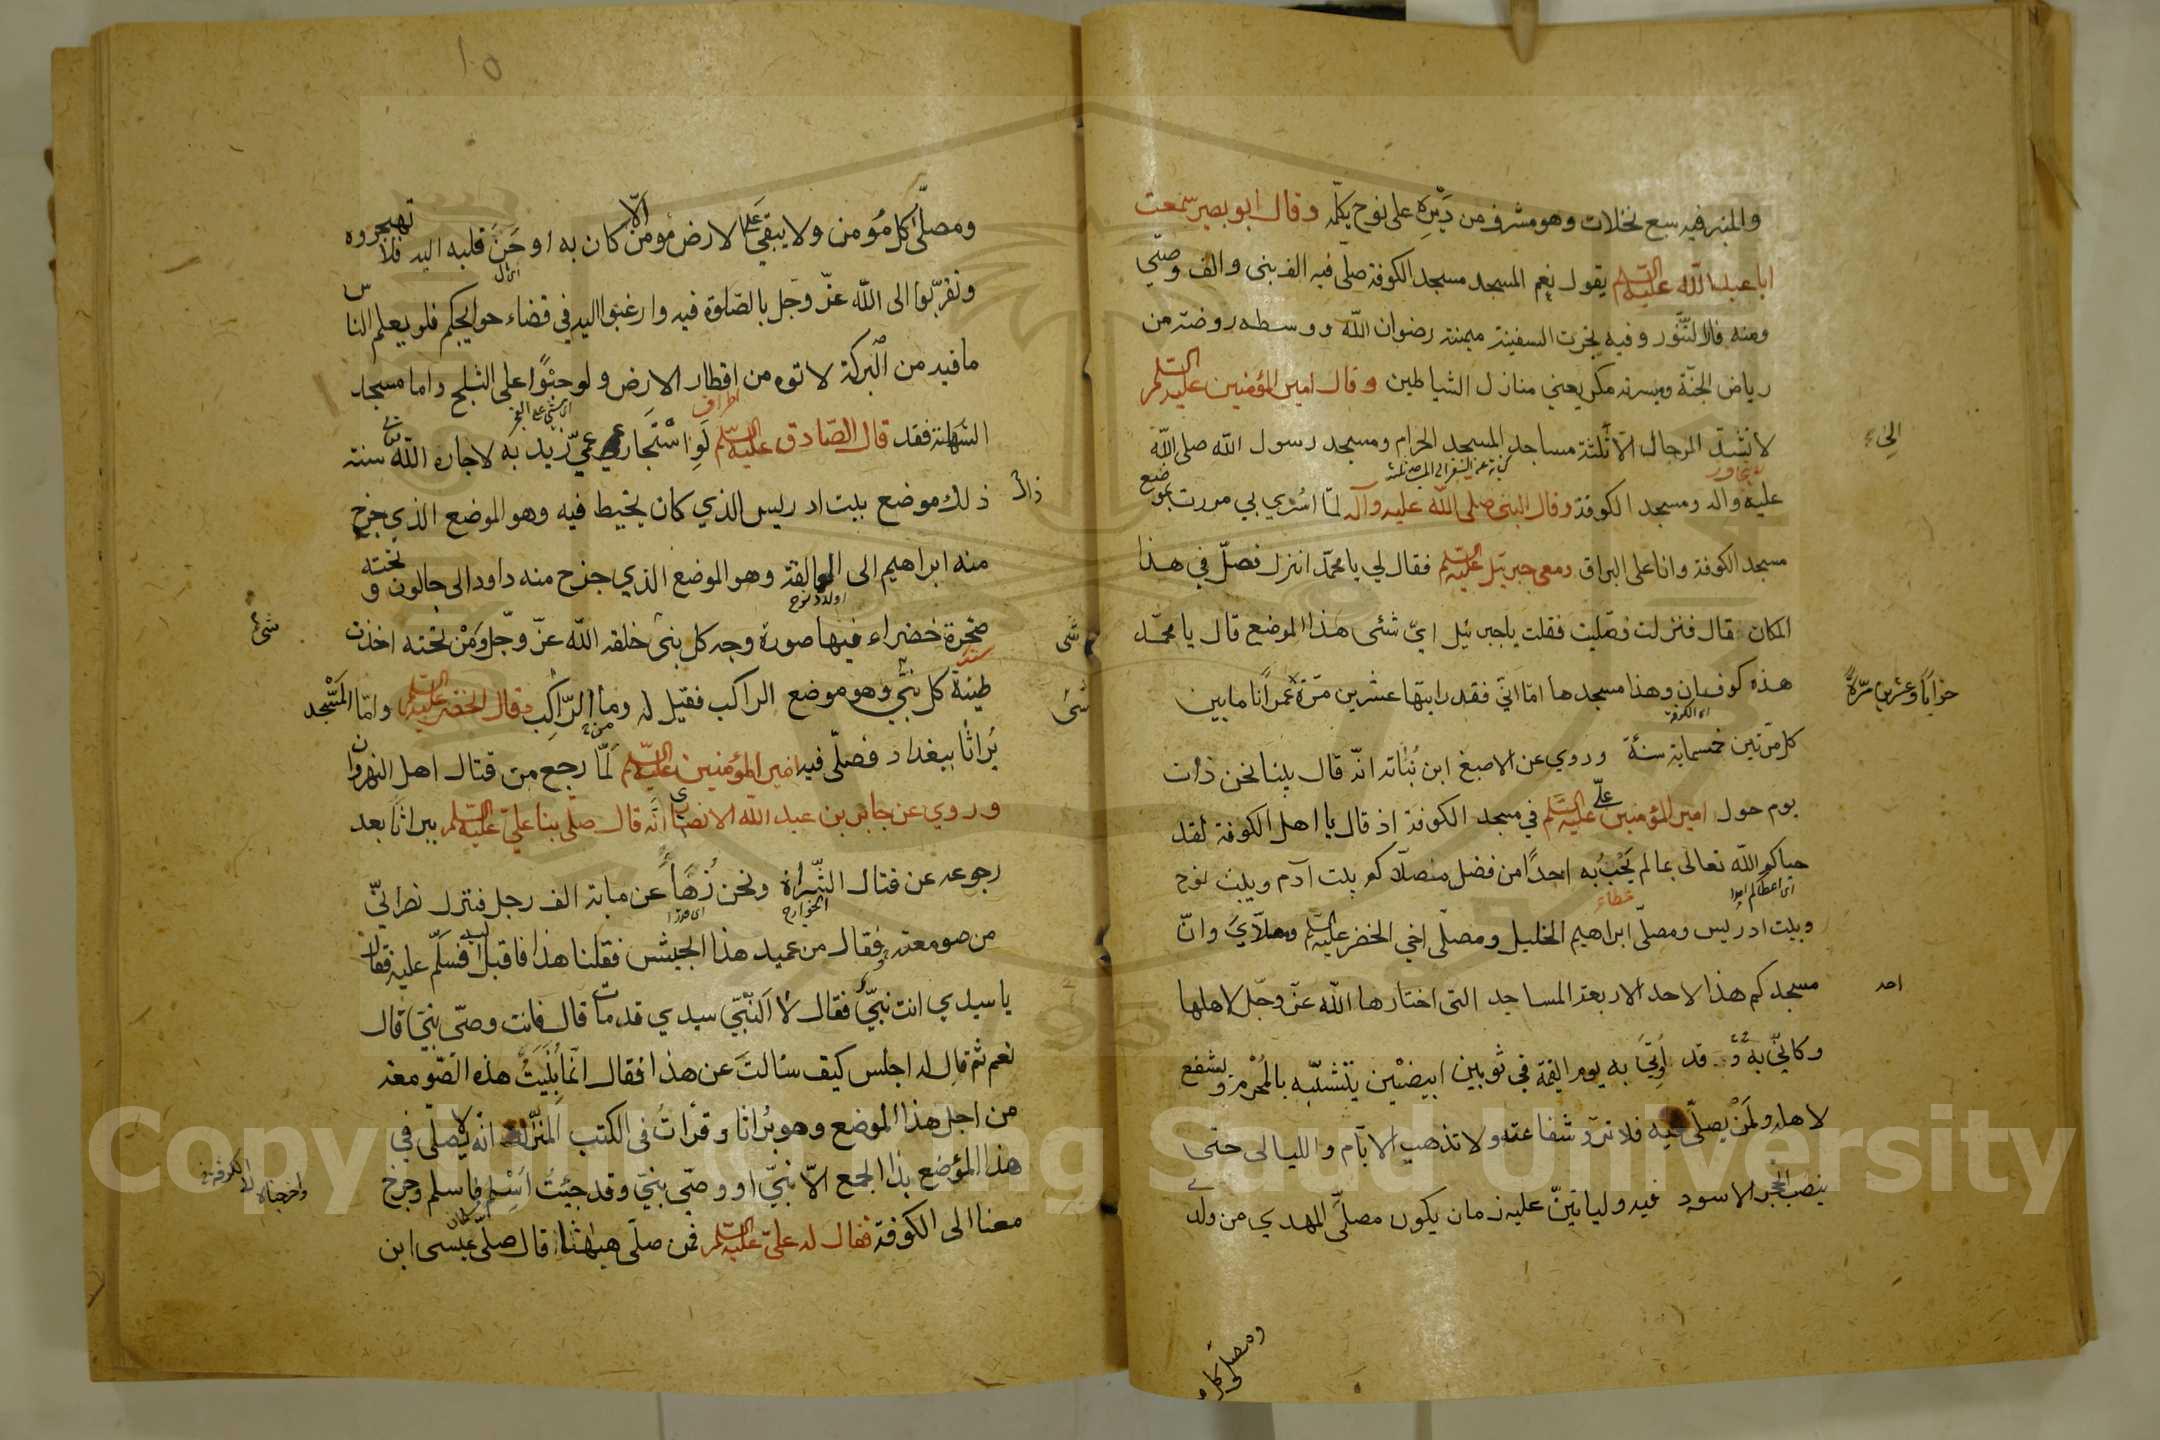 والمنبر فيه سبع نخلات وهو مشرف من ديره على نوح يكلّمه وقال ابو بصير سمعت
ابا عبد اللّه عليه السّلم يقول نعم المسجد مسجد الكوفة صلّى فيه الف نبى والف وصّي
ومنه فار التّنّور وفيه نجرت السفينة ميمنته رضوان اللّه ووسطه روضة من
رياض الجنّة وميسرته مكر يعني منازل الشياطين وقال امير المؤمنين عليه السّلم
لا تشدّ الرحال الّا ثلثة مساجد المسجد الحرام ومسجد رسول اللّه صلى اللّه
عليه واله ومسجد الكوفة وقال النبى صلى اللّه عليه وآله لمّا اسُري بي مررت بموضع
مسجد الكوفة وانا على البراق ومعى جبرئيل عليه السّلم فقال لي يا محمّد انزل فصلّ في هذا
المكان قال فنزلت فصلّيت فقلت يا جبرئيل ايّ شئى هذا الموضع قال يا محمّد
هذه كوفان وهذا مسجدها امّا انّي فقد رايتها عشرين مرّة خرابًا وعشرين مرّةً عمرانا ما بين
كل مرّتين خمسماية سنة وروي عن الاصبغ ابن نُباته انّه قال بينا نحن ذات
يوم حول امير المؤمنين علىّ عليه السّلم في مسجد الكوفة اذ قال يا اهل الكوفة لقد
حباكم اللّه تعالى بما لم يَحْبُ به احدًا من فضل مصلّاكم بيت آدم وبيت نوح
وبيت ادريس ومصلّى ابراهيم الخليل ومصلّى اخي الخضر عليه السّلم ومصلّايَ وانّ
مسجدكم هذا لاحد الاربعة المساجد التى اختارها اللّه عزّ وجّل لاهلها
وكانّي به قد اُوتِيَ به يوم القيمة في ثوبين ابيضين يتشبّه بالمُحْرم ويشفع
لاهله ولمَنْ يصلّى فيه فلا تردّ شفاعته ولا تذهب الايّام والليالى حتى
ينصب الحجر الاسود فيه ولياتينّ عليه زمان يكون مصلّى المهدي من ولدى
ومصلّى كل
ومصلّى كل مُؤمن ولا يبقى على الارض مؤمن الّا كان به او حَنَّ قلبه اليه فلا تهجروه
وتقربّوا الى اللّه عزّ وجَل بالصّلوة فيه وارغبوا اليه في قضاء حوايجكم فلو يعلم الناس
ما فيه من البركة لاتوه من اقطار الارض ولو حبْوًا على الثلج واما مسجد
السّهلة فقد قال الصّادق عليه السّلم لَوِ اسْتَجار عمّي زيد به لاجاره اللّه سنة
ذلك موضع بيت ادريس الذي كان يخيط فيه وهو الموضع الذي خرج
منه ابراهيم الى العمالقة وهو الموضع الذي خرج منه داود الى جالوت و تحته
صخرة خضراء فيها صورة وجه كل نبىّ خلقه اللّه عزّ وجّل ومَنْ تحته اخذت
طينة كل نبيّ وهو موضع الراكب فقيل له وما الرّاكِب قال الخضر عليه السّلم وامّا المَسْجد
بُراثا ببغداد فصلّى فيه امير المؤمنين عليه السّلم لَمّا رجع من قتال اهل النهروان
وروي عن جابر بن عبد اللّه الانصاري انّه قال صلّى بنا علىّ عليه السّلم ببراثا بعد
رجوعه عن قتال الشّراة ونحن زُهَاءُ عن ماية الف رجل فنزل نصرانيّ
من صومعته فقال من عميد هذا الجيش فقلنا هذا فاقبل اليه فسلّم عليه فقال
يا سيدي انت نبيّ فقال لا النّبيّ سيدي قد مات قال فانت وصّى نبيّ قال
نعم ثم قال له اجلس كيف سالتَ عن هذا فقال انّما بُنِيَتْ هذه الصّومعة
من اجل هذا الموضع وهو بُراثا وقراتُ في الكتب المنزّلة انّه لا يُصلّى في
هذا الموضع بذا الجمع الّا نبيّ او وصّي نبيّ وقد جئتُ اُسْلِم فاسلم وخرج
معنا الى الكوفة فقال له علىّ عليه السّلم فمن صلّى هيهنا قال صلّى عيسى ابن
Copyright © King Saud University